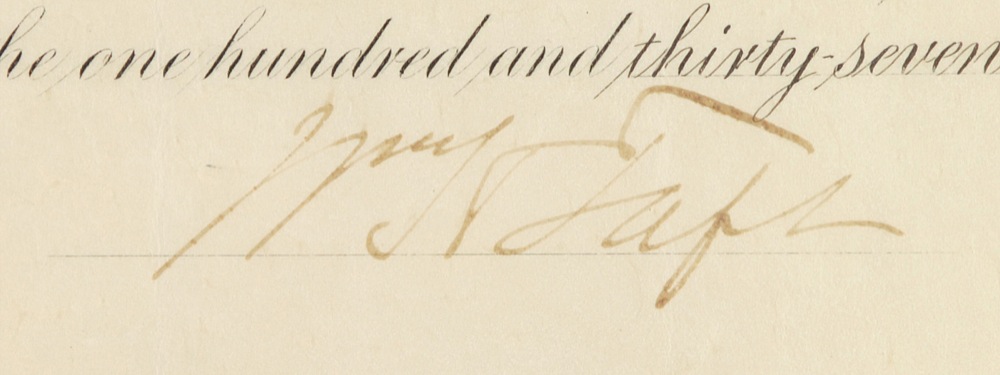 he one hundred and thirty-seven
Wm H Taft